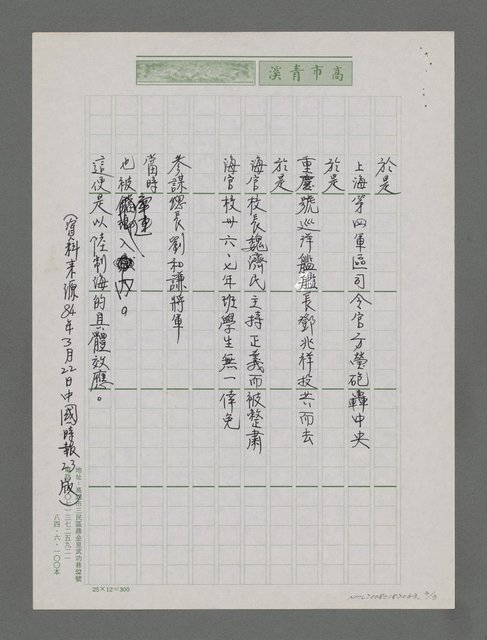 高市青溪
於是
上海第四軍區司令官方瑩砲轟中央
於是
重慶號巡洋艦艦長鄧兆祥投共而去
於是
海官校長魏濟民主持正義而被整肅
海官校卅六、七年班學生無一倖免
參謀總長劉和謙將軍
當時
也被入。
這便是以陸制海的具體效應。
(資料來源84年3月22日中國時報23版)
地址：高雄市三民區鼎金里武功巷號
三七二五九二一
八四．六．一〇〇本
25×12=300